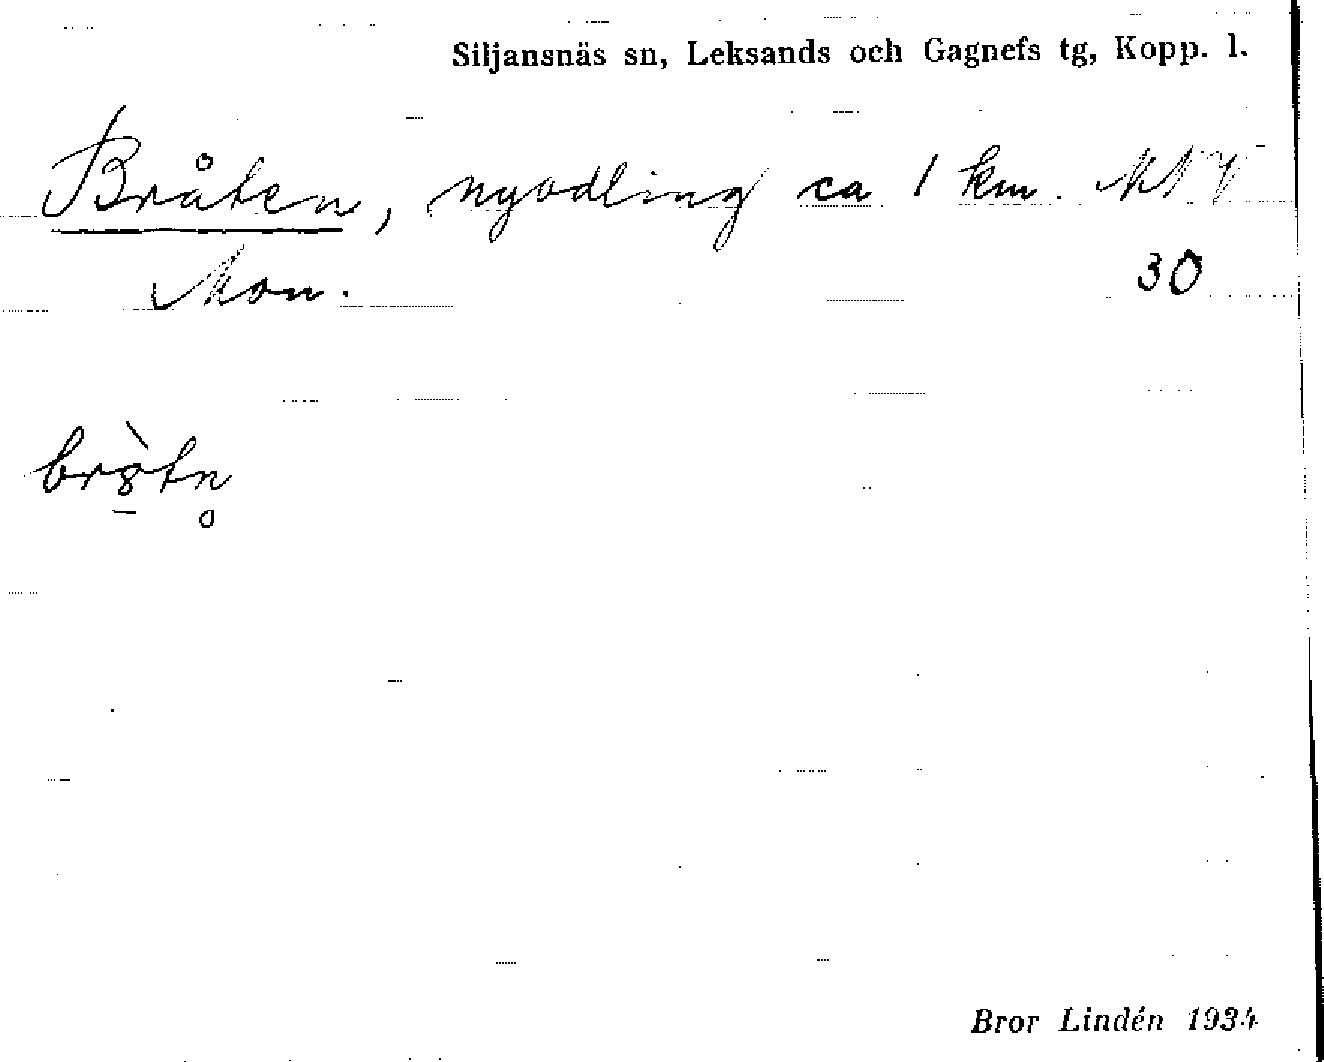 Siljansnäs sn, Leksands och Gagnefs tg, Kopp. l.
Bråten, nyodling ca 1 km. NNV
Mon. 30
brȣ̀tn̥
Bror Lindén 1934